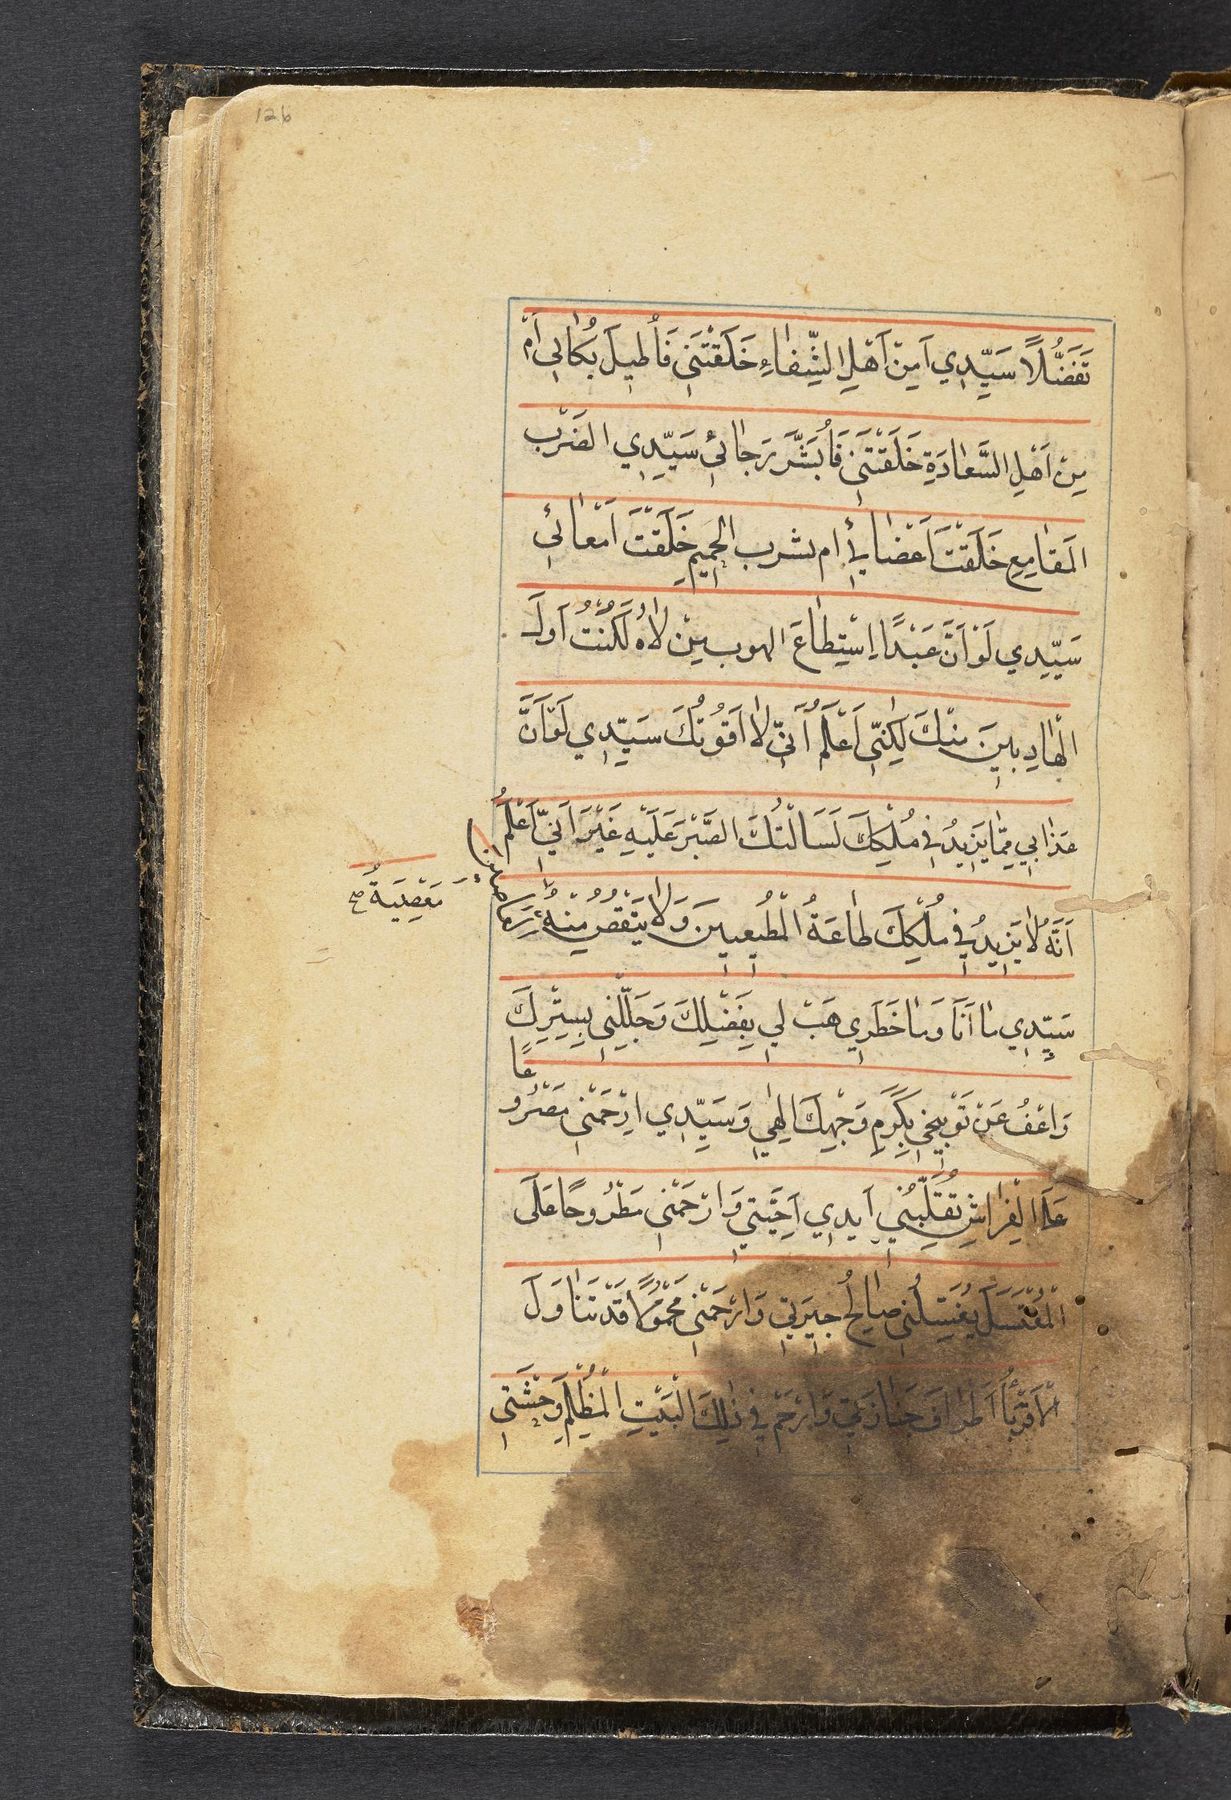 126
تَفَضُّلًا سَيِّدِي اَمِنْ اَهْلِ الشِّقاءِ خَلَقْتَنِي فَاُطيلَ بُكائي اَمْ
مِنْ اَهْلِ السَّعادَةِ خَلَقْتَنِي فَاُبَشِّرَ رَجائي سَيِّدِي الضَرْب
المَقامِعِ خَلَقْتَ اَعْضائي ام لشرب الحَميمِ خَلَقْتَ اَمْعائي
سَيِّدِي لَوْ اَنَّ عَبْدًا اِسْتِطاعَ الهوب مِنْ لاهُ لَكُنْتُ اَولَ
الْهارِبينَ مِنْكَ لكِنّي اَعْلَمُ اَنّي لا اَفُوتُكَ سَيِّدِي لَوْ اَنَّ
عَذابي مِمّا يَزيدُ في مُلْكِكَ لَسَالْتُكَ الصَّبْرَ عَلَيْهِ غَيْرَ اَنّي اَعْلَمُ
اَنَّهُ لا يَزيدُ في مُلْكِكَ طاعَةُ الْمُطيعينَ وَلا يَنْقُصُ مِنْهُ
مَعْصِيَةُ صح
سَيِّدِي ما اَنَا وَما خَطَري هَبْ لي بِفَضْلِكَ وَجَلِّلْني بِسِتْرِكَ
وَاعْفُ عَنْ تَوْبيخي بِكَرَمِ وَجْهِكَ اِلهي وَسَيِّدِي ارْحَمْني مَصْرُوعًا
عَلَى الْفِراشِ تُقَلِّبُني اَيدي اَحِبَّتي وَارْحَمْني مَطْرُوحًا عَلَى
الْمُغْتَسَلِ يُغَسِّلُني صالِحُ جيرَتي وَارْحَمْني مَحْمُولًا قَدْ تَناوَلَ
الْاَقْرِباءُ اَطْرافَ جَنازَتي وَارْحَمْ في ذلِكَ الْبَيْتِ الْمُظْلِمِ وَحْشَتي